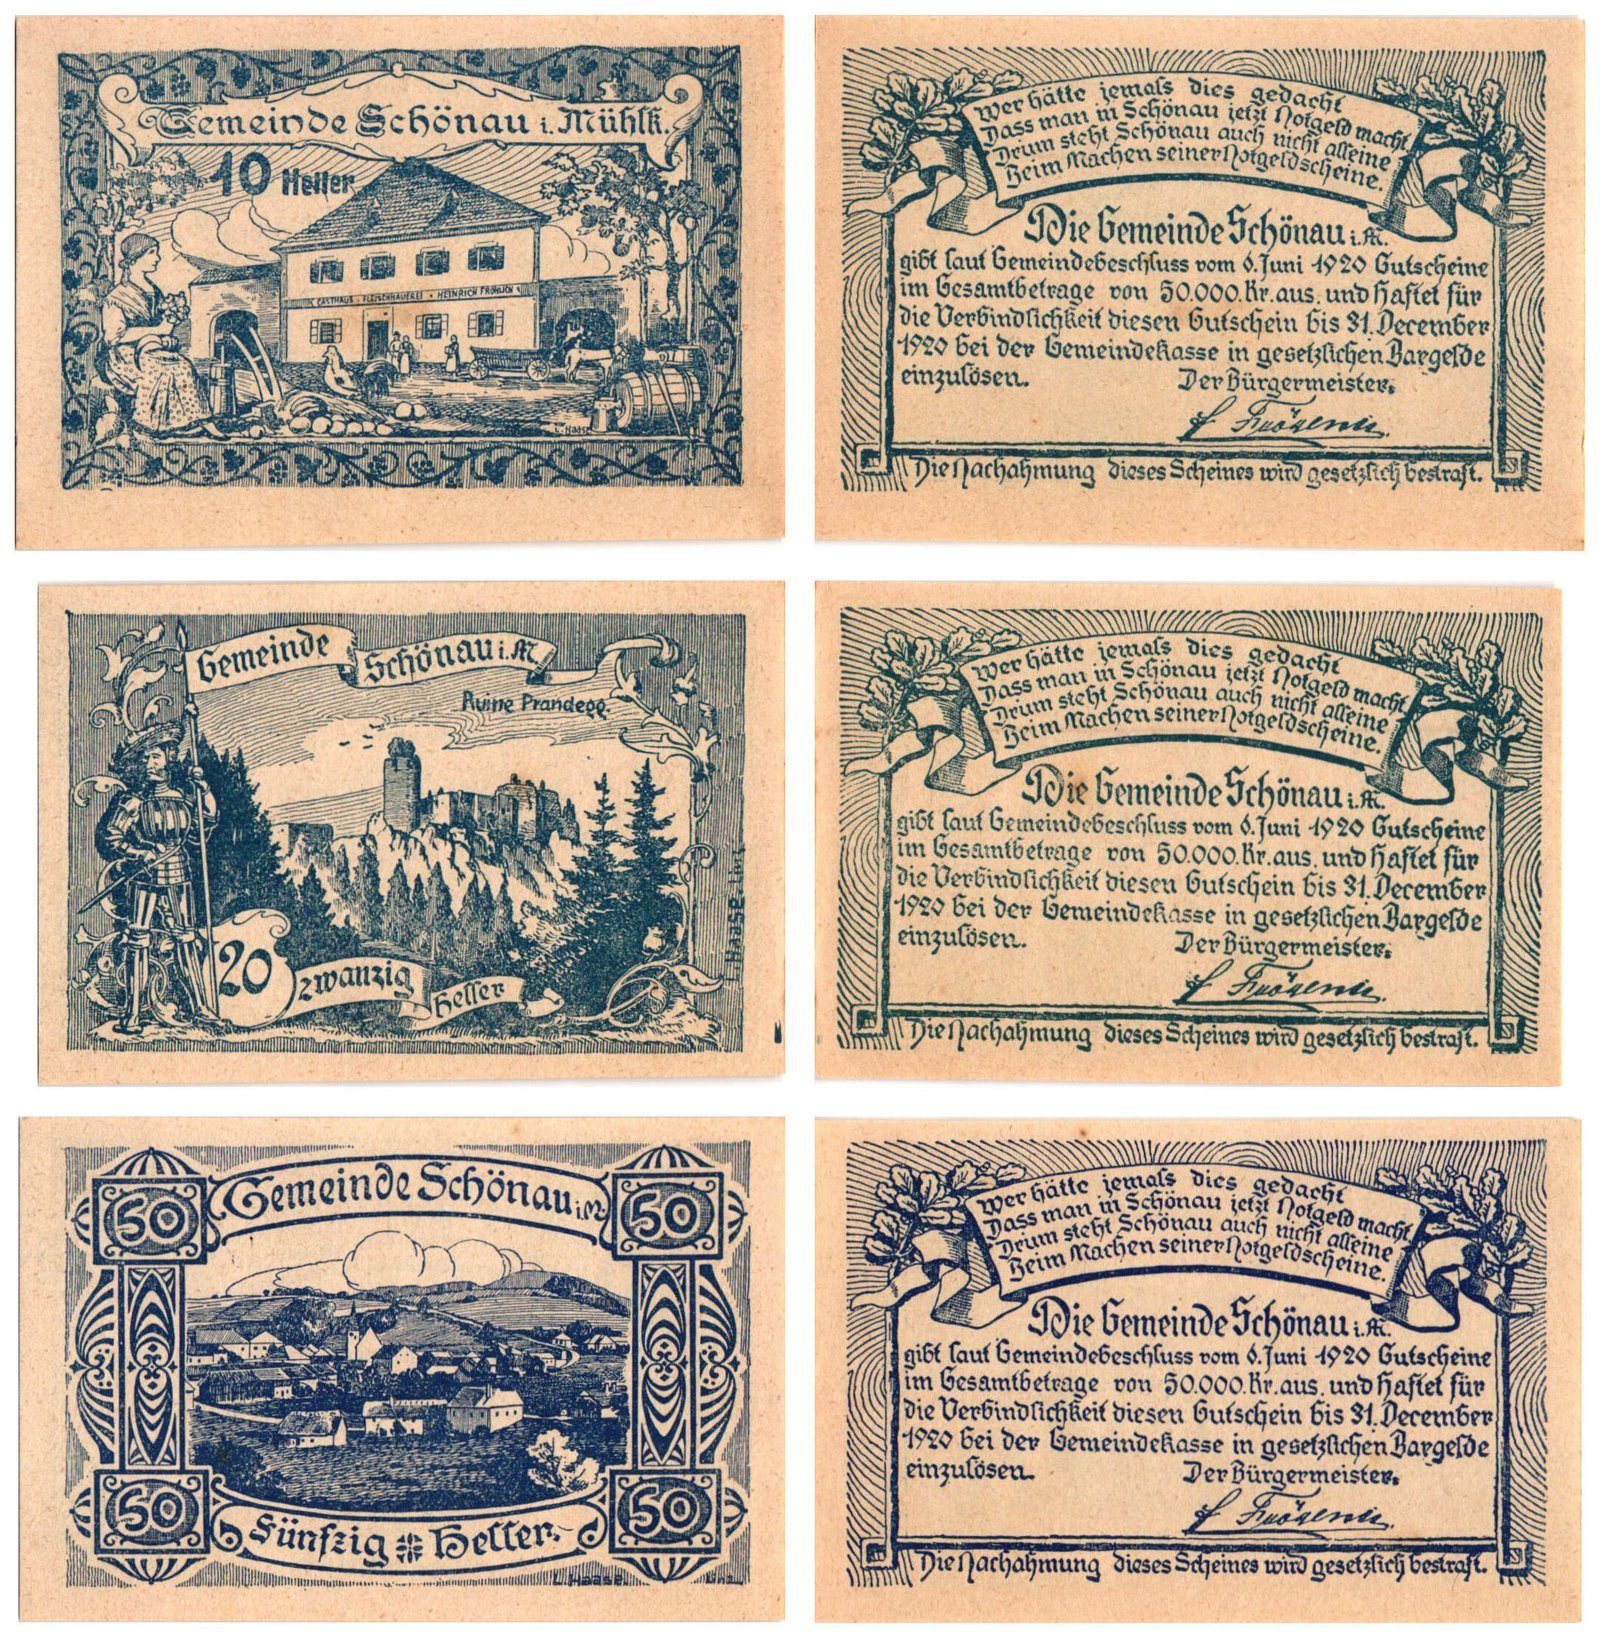 Gemeinde Schönau i. Mühlk.
10 Heller
GASTHAUS · FLEISCHHAUEREI · HEINRICH FRÖHLICH
L. Haase
Wer hätte jemals dies gedacht
Dass man in Schönau jetzt Notgeld macht
Drum steht Schönau auch nicht alleine
Beim Machen seiner Notgeldscheine.
Die Gemeinde Schönau i. M.
gibt laut Gemeindebeschluss vom 6. Juni 1920 Gutscheine
im Gesamtbetrage von 50.000.Kr. aus, und haftet für
die Verbindlichkeit diesen Gutschein bis 31. December
1920 bei der Gemeindekasse in gesetzlichen Bargelde
einzulösen. Der Bürgermeister.
Die Nachahmung dieses Scheines wird gesetzlich bestraft.
Gemeinde Schönau i. M.
Ruine Prandegg.
20 zwanzig Heller
L. HAASE Linz
Wer hätte jemals dies gedacht
Dass man in Schönau jetzt Notgeld macht
Drum steht Schönau auch nicht alleine
Beim Machen seiner Notgeldscheine.
Die Gemeinde Schönau i. M.
gibt laut Gemeindebeschluss vom 6. Juni 1920 Gutscheine
im Gesamtbetrage von 50.000.Kr. aus, und haftet für
die Verbindlichkeit diesen Gutschein bis 31. December
1920 bei der Gemeindekasse in gesetzlichen Bargelde
einzulösen. Der Bürgermeister.
Die Nachahmung dieses Scheines wird gesetzlich bestraft.
50 Gemeinde Schönau i. M. 50
50 Fünfzig Heller. 50
L. Haase. Linz
Wer hätte jemals dies gedacht
Dass man in Schönau jetzt Notgeld macht
Drum steht Schönau auch nicht alleine
Beim Machen seiner Notgeldscheine.
Die Gemeinde Schönau i. M.
gibt laut Gemeindebeschluss vom 6. Juni 1920 Gutscheine
im Gesamtbetrage von 50.000.Kr. aus, und haftet für
die Verbindlichkeit diesen Gutschein bis 31. December
1920 bei der Gemeindekasse in gesetzlichen Bargelde
einzulösen. Der Bürgermeister.
Die Nachahmung dieses Scheines wird gesetzlich bestraft.